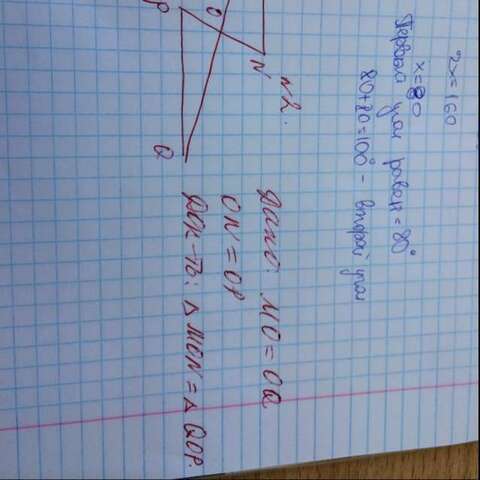 2x = 160
x = 80
Первый угол равен = 80°
80 + 20 = 100° - второй угол
№2.
N
O
P
Q
Дано: MO = OQ
ON = OP
Док-ть: △ MON = △ QOP.